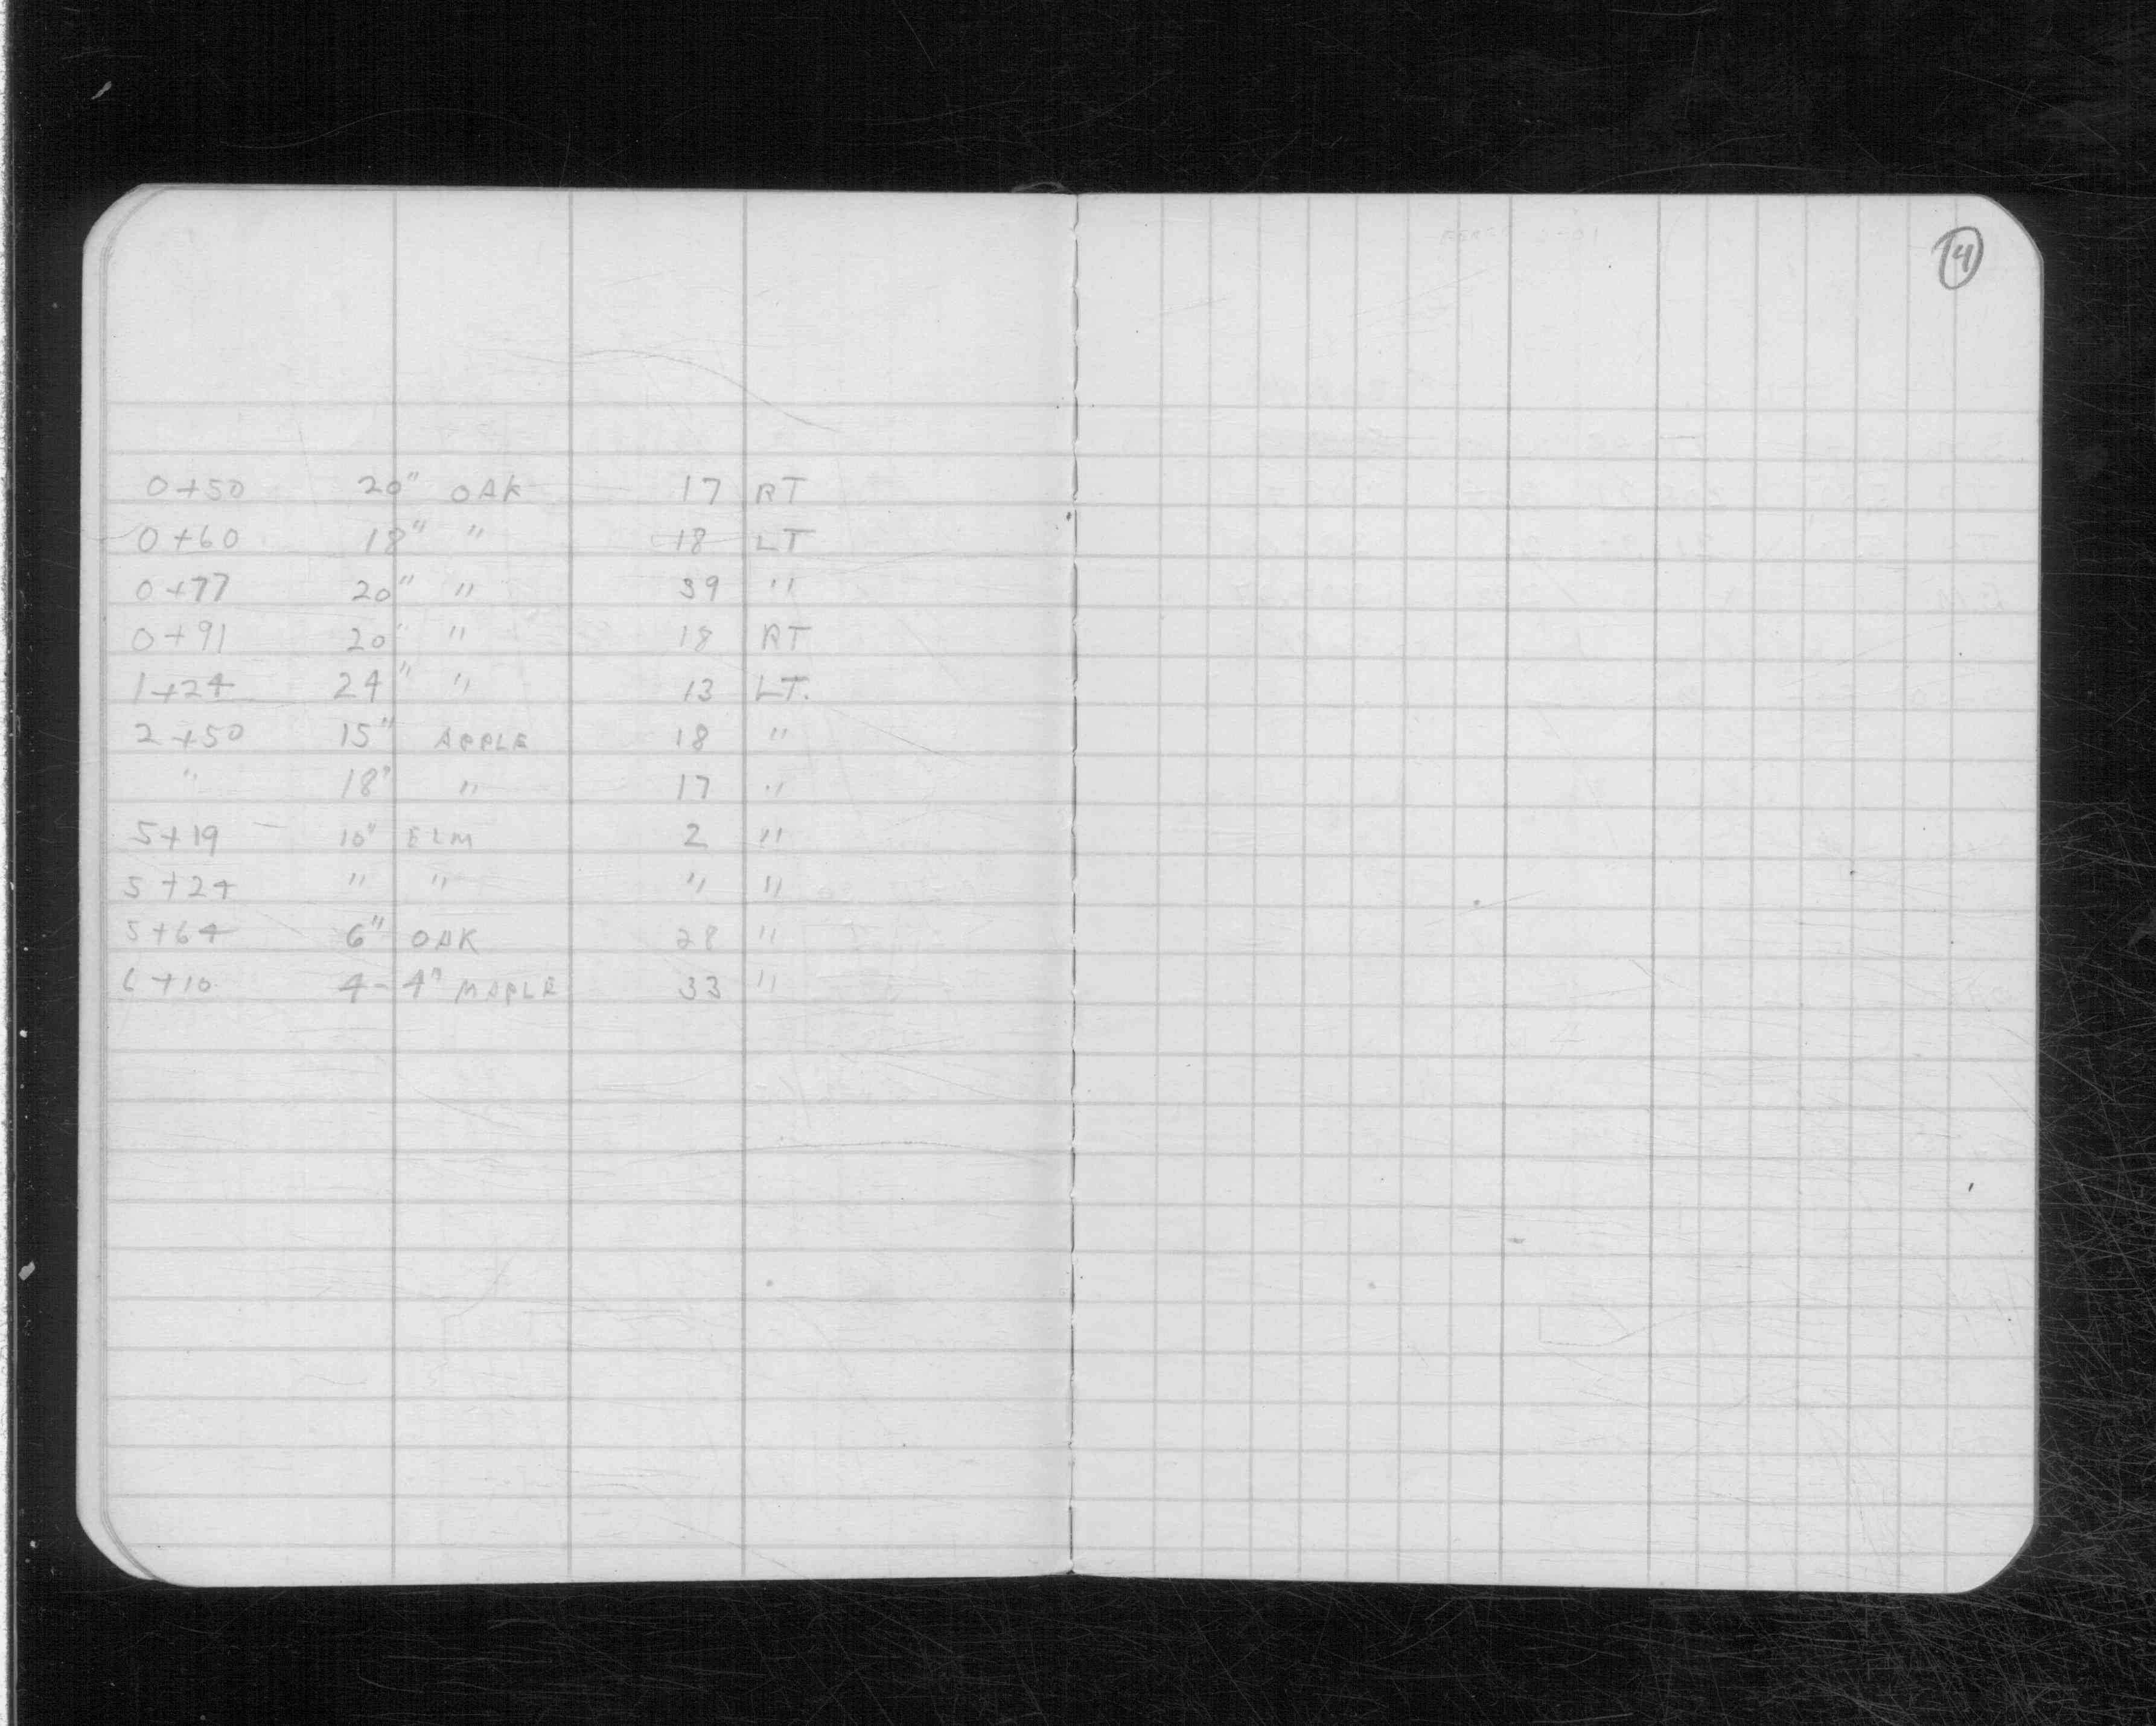 4
0+50 20" OAK 17 RT
0+60 18" " 18 LT
0+77 20" " 39 "
0+91 20" " 18 RT
1+24 24" " 13 LT.
2+50 15" APPLE 18 "
" 18" " 17 "
5+19 10" ELM 2 "
5+24 " " " "
5+64 6" OAK 28 "
6+10 4-4" MAPLE 33 "